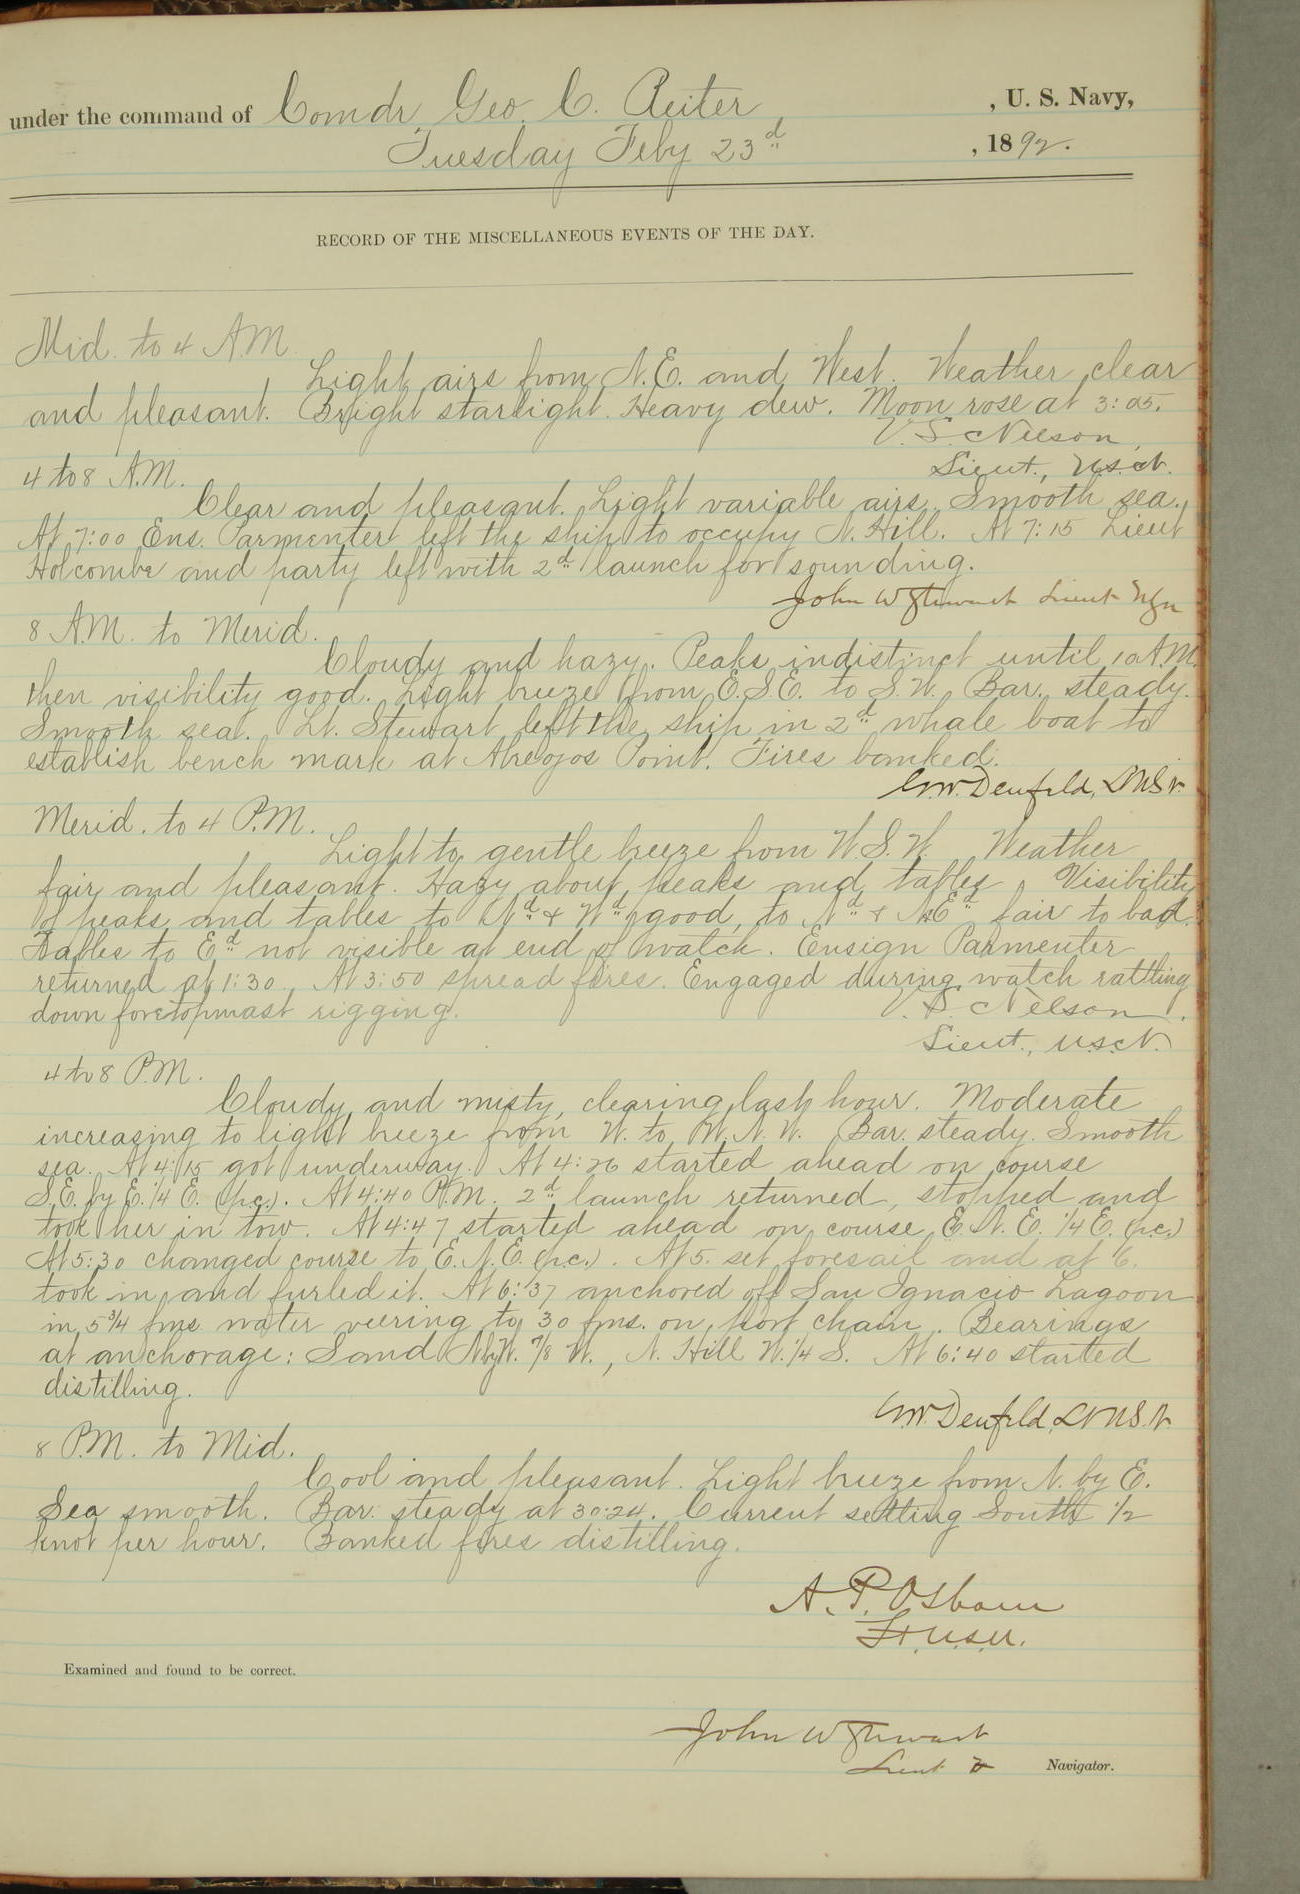 under the command of Comdr. Geo. C. Reiter, , U. S. Navy,
Tuesday Feby 23d , 1892.
RECORD OF THE MISCELLANEOUS EVENTS OF THE DAY.
Mid. to 4 A.M.
Light airs from N.E. and West. Weather clear
and pleasant. Bright starlight. Heavy dew. Moon rose at 3:05.
V. S. Nelson,
Lieut., U.S.N.
4 to 8 A.M.
Clear and pleasant. Light variable airs. Smooth sea.
At 7:00 Ens. Parmenter left the ship to occupy N. Hill. At 7:15 Lieut
Holcombe and party left with 2d launch for sounding.
John W Stewart Lieut USN
8 A.M. to Merid.
Cloudy and hazy. Peaks indistinct until 10 A.M.
then visibility good. Light breeze from E.S.E. to S.W. Bar. steady.
Smooth sea. Lt. Stewart left the ship in 2d whale boat to
establish bench mark at Abreojos Point. Fires banked.
G.W. Denfeld, Lt U.S.N.
Merid. to 4 P.M.
Light to gentle breeze from W.S.W. Weather
fair and pleasant. Hazy about peaks and tables. Visibility
of peaks and tables to Nd & Wd good, to Nd & NEd fair to bad.
Tables to Ed not visible at end of watch. Ensign Parmenter
returned at 1:30. At 3:50 spread fires. Engaged during watch rattling
down foretopmast rigging.
V. S. Nelson,
Lieut., U.S.N.
4 to 8 P.M.
Cloudy and misty, clearing last hour. Moderate
increasing to light breeze from W. to W.N.W. Bar. steady. Smooth
sea. At 4:15 got underway. At 4:26 started ahead on course
S.E. by E. 1/4 E. (p.c.). At 4:40 P.M. 2d launch returned, stopped and
took her in tow. At 4:47 started ahead on course E.N.E. 1/4 E. (p.c.)
At 5:30 changed course to E.N.E. (p.c.). At 5. set foresail and at 6.
took in and furled it. At 6:37 anchored off San Ignacio Lagoon
in 5 3/4 fms. water veering to 30 fms. on port chain. Bearings
at anchorage: Sand N. by W. 7/8 W., N. Hill W. 1/4 S. At 6:40 started
distilling.
G.W. Denfeld, Lt U.S.N.
8 P.M. to Mid.
Cool and pleasant. Light breeze from N. by E.
Sea smooth. Bar. steady at 30:24. Current setting South 1/2
knot per hour. Banked fires distilling.
A. P. Osborn
Lt. U.S.N.
Examined and found to be correct.
John W Stewart
Lieut Navigator.